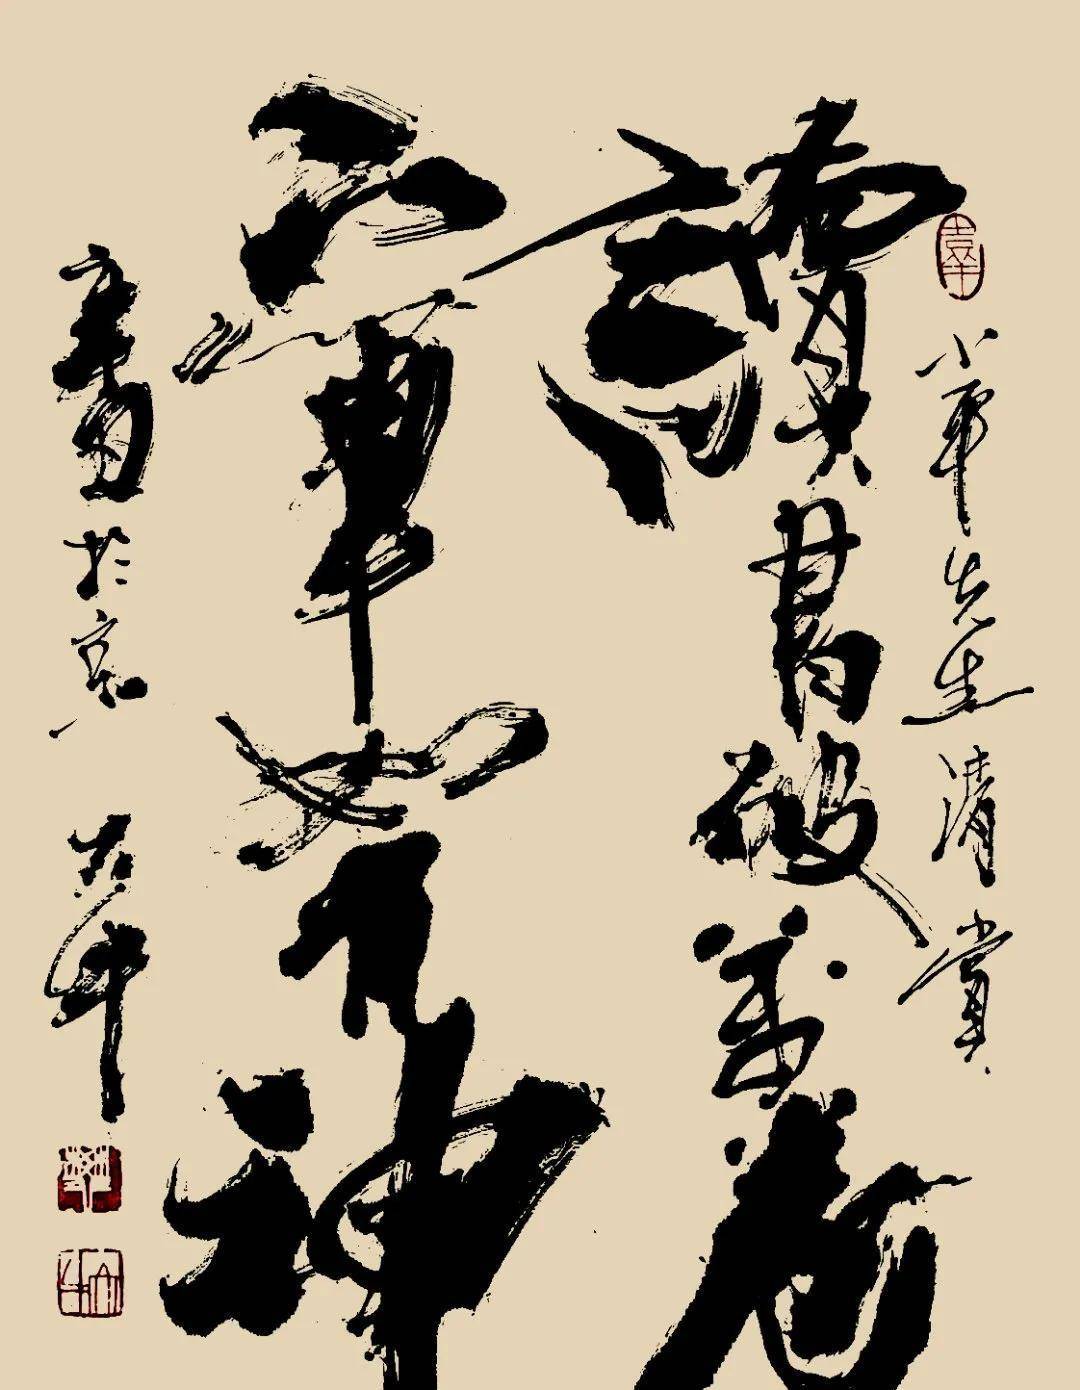 小平先生清賞
讀書破萬卷
下筆如有神
書於京